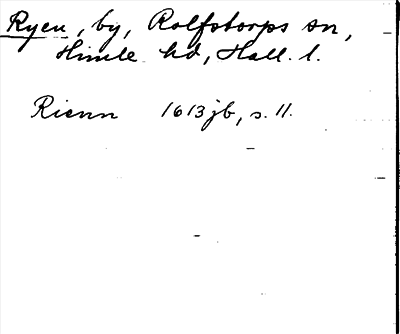 Ryen, by, Rolfstorps sn,
Himle hd, Hall. l.
Rienn 1613 jb, s. 11.